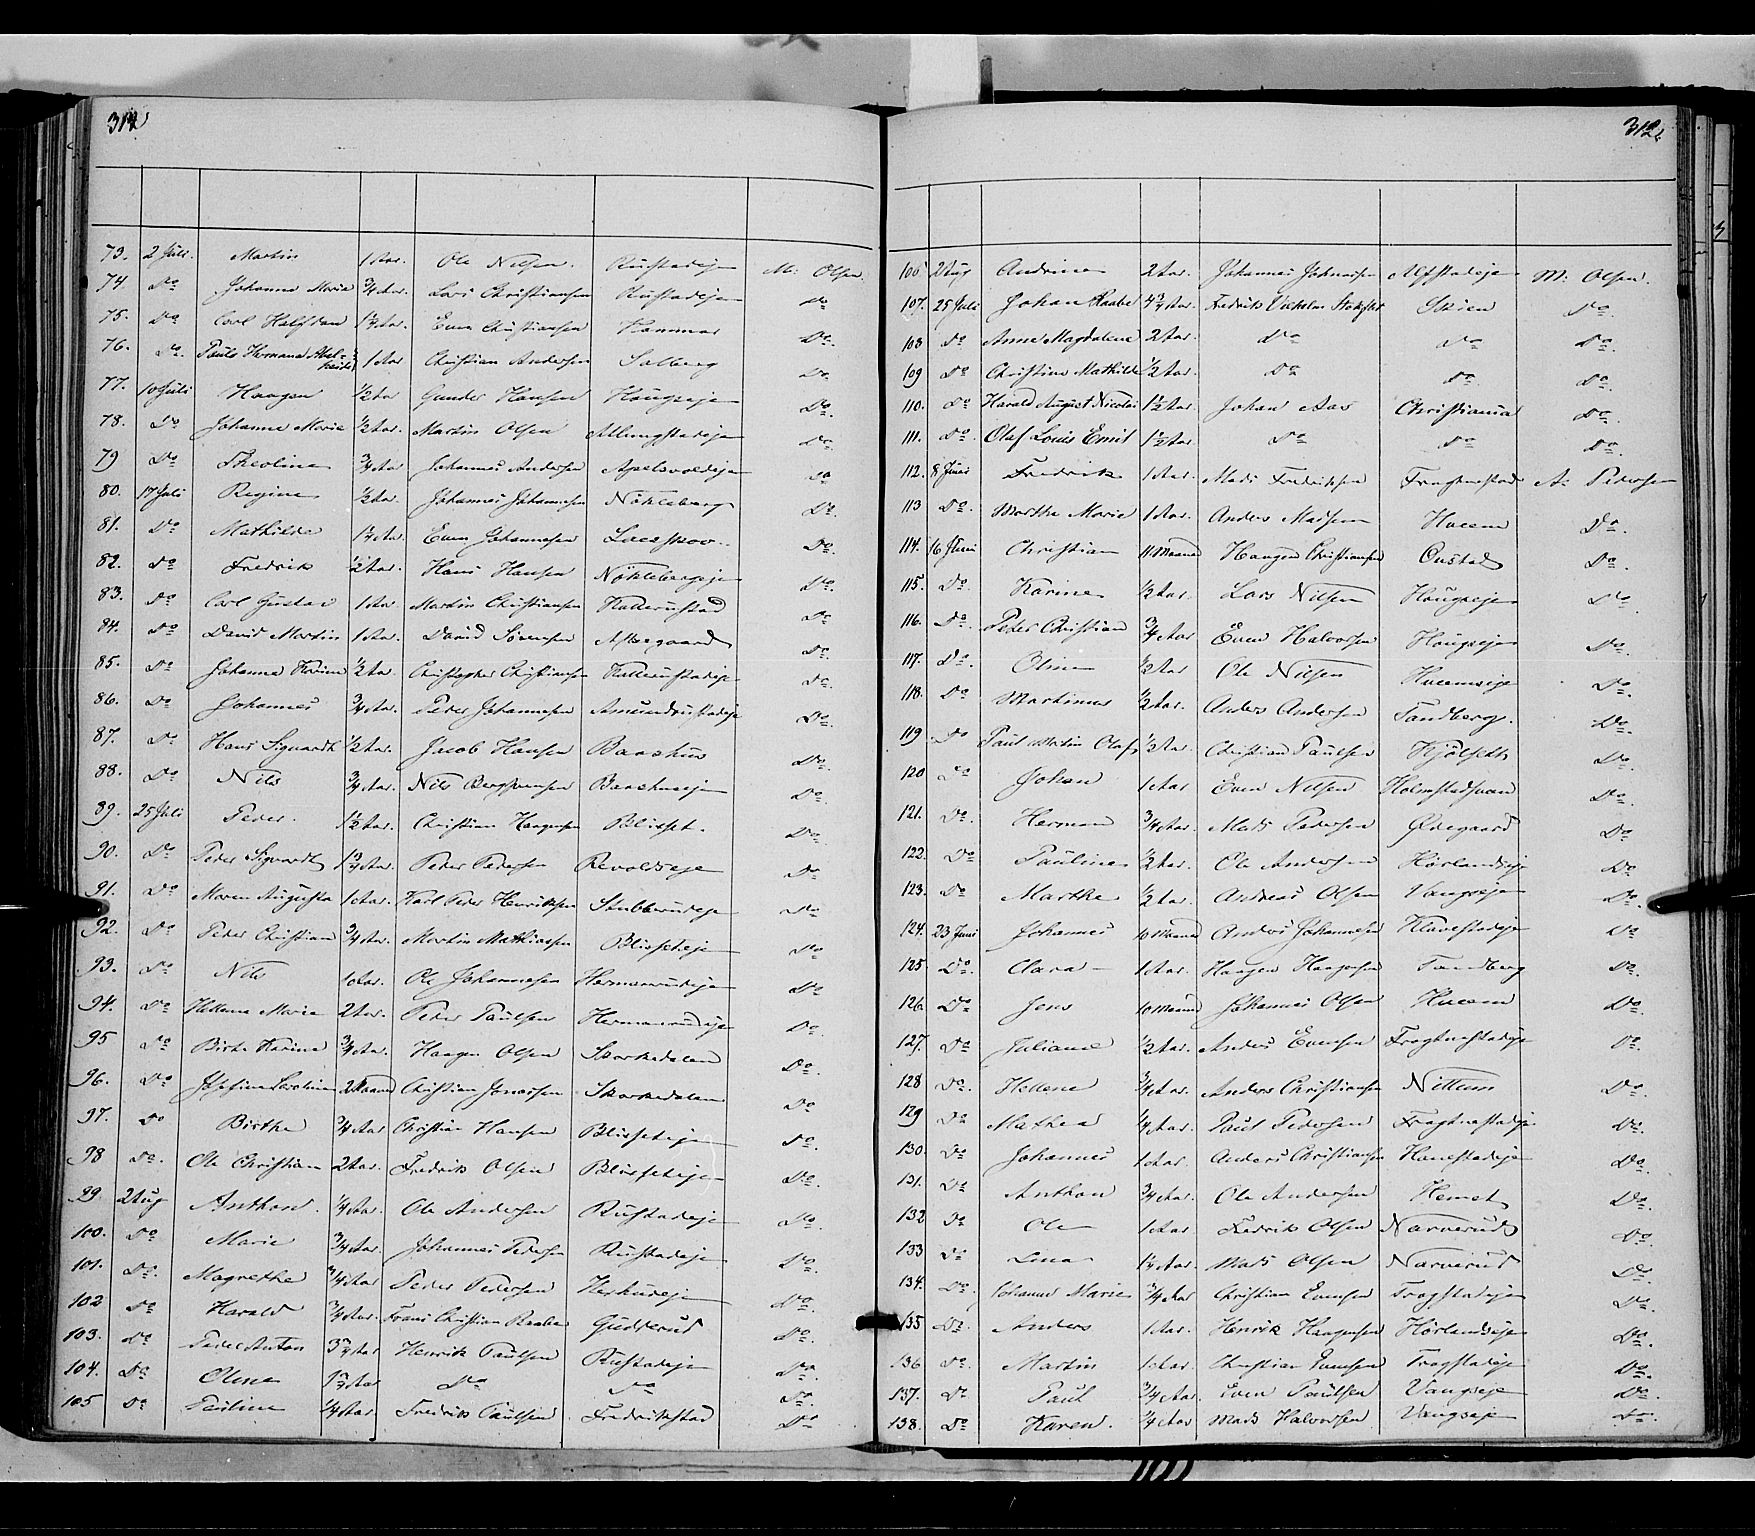 312
73. 2 Juli. Martin 1 Aar. Ole Nilsen. Rustadeje M: Olsen.
74 Do Johanne Marie 3/4 Aar. Lars Christiansen Rustadeje Do
75. Do Carl Halfdan 1 1/4 Aar. Even Christiansen Kammar Do.
76. Do. Paule Hermana Abel- 1 Aar Christian Andersen Solberg Do
77. 10 Juli Haagen 1/2 Aar Gunder Hansen Haugseje Do.
78. Do Johanne Marie 1/2 Aar. Martin Olsen Do
79 Do Theoline 3/4 Aar Johannes Andersen Apelsvoldeje Do
80. 17 Juli Regine 1/2 Aar. Johannes Johannesen Nökleberg Do.
81. Do Mathilde 1 1/4 Aar. Even Johannesen Do.
82. Do Fredrik 1/2 Aar. Hans Hansen Nöklebergeje Do.
83. Do Carl Gustav 1 Aar Martin Christiansen Kallerustad Do
84. Do David Martin 1 Aar. David Sörensen Do.
85. Do Johanne Karine 1/2 Aar Christopher Christiansen Kallerustadeje Do.
86. Do Johannes 3/4 Aar. Peder Johannesen Amundrustadeje Do.
87. Do Hans Siguardt 1/2 Aar. Jacob Hansen Baashus Do.
88. Do Nils 3/4 Aar. Nils Bergsvensen Baashuseje Do.
89. 25 Juli Peder. 1 1/2 Aar. Christian Haagensen Blisset. Do.
90. Do Peder Siguardt 1 3/4 Aar. Peder Pedersen Revoldseje Do
91. Do Maren Augusta 1 Aar. Karl Peder Henriksen Stubberudeje Do
92. Do Peder Christian 3/4 Aar. Martin Mathiassen Blisseteje Do
93. Do Nils 1 Aar. Ole Johannesen Hermanrudeje Do
94. Do Hellene Marie 2 Aar. Peder Paulsen Hermanrudeje Do
95 Do Birte Karine 3/4 Aar. Haagen Olsen Skorkedalen Do.
96. Do Josefine Caroline 2 Maaned Christian Jonassen Skorkedalen Do
97. Do Birthe 3/4 Aar Christian Hansen Blisseteje Do.
98 Do. Ole Christian 2 Aar. Fredrik Olsen Blisseteje Do.
99. 2 Aug Anthon. 1/4 Aar. Ole Andersen Rustadeje Do
100. Do Marie 3/4 Aar. Johannes Pedersen Rustadeje Do.
101. Do. Magrethe 3/4 Aar Peder Pedersen Do
102 Do Harald 3/4 Aar. Frans Christian Raabe Gudderud Do.
103. Do Peder Anton Henrik Paulsen Rustadeje Do.
104. Do Oline Do Do Do.
105 Do Pauline 1/4 Aar. Fredrik Paulsen Fredrikstad Do
312
106 2 Aug Andrine 2 Aar. Johannes Johnassen Alfstadeje M: Olsen.
107. 25 Juli Johan Raabe 4 3/4 Aar. Fredrik Vilhelm Skien Do.
108 Do Anne Magdalene 2 Aar. Do Do Do.
109 Do Christine Mathilde 1/2 Aar. Do Do. Do.
110. Do Harald August Nicolai 1 1/2 Aar. Johan Aas Christiania Do.
111. Do. Olaf Louis Emil 1 1/2 Aar. Do Do Do.
112. 8 Juni Fredrik 1 Aar. Mads Fredriksen Fragtnestad A: Pedersen
113 Do. Marthe Marie 1 Aar. Anders Madsen Hveem Do.
114. 16 Juni Christian 11 Maaned Haagen Christiansen Do.
115. Do Karine 1/2 Aar. Lars Nilsen Haugseje Do
116. Do. Peder Christian 3/4 Aar Even Halvorsen Haugseje Do.
117. Do. Oline 1/2 Aar Ole Nilsen Hveemseje Do.
118. Do Martinus 1/2 Aar. Anders Andersen Tandberg. Do.
119 Do Paul Martin Olaf 1/2 Aar. Christian Paulsen Kjölseth Do.
120 Do Johan 1 Aar Even Nilsen Holmstadsvan Do.
121. Do. Herman 3/4 Aar. Mads Pedersen Ödegaard Do
122. Do Pauline 1/2 Aar. Ole Andersen Hörlandseje Do
123. Do Marthe 1/2 Aar. Andreas Olsen Vangseje Do.
124. 23 Juni Johannes 10 Maaned Anders Johannesen Klavestadeje Do
125 Do. Clara 1 Aar. Haagen Haagensen Tandberg Do.
126. Do. Jens 10 Maaned Johannes Olsen Hveem Do
127. Do. Juliane 1/2 Aar. Anders Evensen Fragtnestadeje Do.
128 Do. Hellene 3/4 Aar. Anders Christiansen Nittum Do
129 Do Mathea 1/4 Aar. Paul Pedersen Fragtnestadeje Do.
130. Do Johannes 1 Aar. Anders Christiansen Do.
131. Do Anthon 3/4 Aar. Ole Andersen Hemet Do.
132 Do Ole 1 Aar. Fredrik Olsen Narverud Do.
133 Do Lena 1 1/4 Aar. Mads Olsen Narverud Do
134. Do. Johanne Marie 3/4 Aar Christian Evensen Fragstadeje Do.
135 Do. Anders 1 Aar. Henrik Haagensen Hörlandseje Do
136 Do. Martin 1 Aar. Christian Evensen Fragstadeje Do.
137. Do Paul 3/4 Aar. Even Paulsen Vangseje Do.
138. Do Karen. 1/4 Aar Mads Halvorsen Vangseje Do.